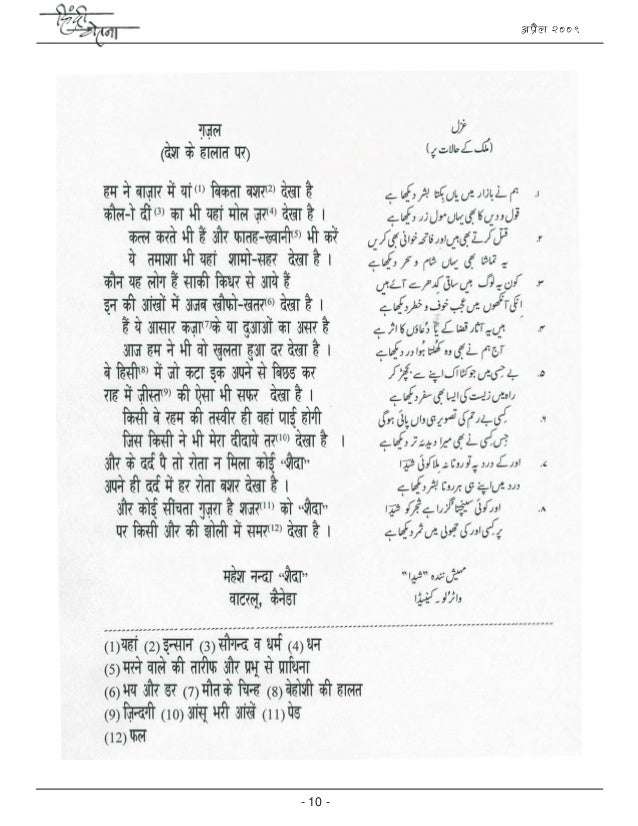 हिंदी चेतना
अप्रैल २००९
ग़ज़ल
(देश के हालात पर)
हम ने बाज़ार में यां (1) बिकता बशर(2) देखा है
कौल-ो दीं (3) का भी यहां मोल ज़र(4) देखा है ।
कत्ल करते भी हैं और फातह-ख्वानी(5) भी करें
ये तमाशा भी यहां शामो-सहर देखा है ।
कौन यह लोग हैं साकी किधर से आये हैं
इन की आंखों में अजब खौफो-खतर(6) देखा है ।
हैं ये आसार कज़ा(7)के या दुआओं का असर है
आज हम ने भी वो खुलता हुआ दर देखा है ।
बे हिसी(8) में जो कटा इक अपने से बिछड कर
राह में ज़ीस्त(9) की ऐसा भी सफर देखा है ।
किसी बे रहम की तस्वीर ही वहां पाई होगी
जिस किसी ने भी मेरा दीदाये तर(10) देखा है ।
और के दर्द पै तो रोता न मिला कोई “शैदा”
अपने ही दर्द में हर रोता बशर देखा है ।
और कोई सींचता गुज़रा है शजर(11) को “शैदा”
पर किसी और की झोली में समर(12) देखा है ।
महेश नन्दा “शैदा”
वाटरलू, कैनेडा
غزل
(ملک کے حالات پر)
۱۔ ہم نے بازار میں یاں بِکتا بشر دیکھا ہے
قول و دیں کا بھی یہاں مول زر دیکھا ہے
۲ قتل کرتے بھی ہیں اور فاتحہ خوانی بھی کریں
یہ تماشا بھی یہاں شام و سحر دیکھا ہے
۳۔ کون یہ لوگ ہیں ساقی کدھر سے آئے ہیں
اِنکی آنکھوں میں عجب خوف و خطر دیکھا ہے
۴۔ ہیں یہ آثار قضا کے یا دُعاؤں کا اثر ہے
آج ہم نے بھی وہ کُھلتا ہُوا در دیکھا ہے
۵۔ بے حسی میں جو کٹا اک اپنے سے بچھڑ کر
راہ میں زیست کی ایسا بھی سفر دیکھا ہے
۶۔ کِسی بے رحم کی تصویر ہی واں پائی ہوگی
جس کِسی نے بھی میرا دیدۂ تر دیکھا ہے
۷۔ اور کے درد پہ تو روتا نہ مِلا کوئی شیؔدا
درد میں اپنے ہی ہر روتا بشر دیکھا ہے
۸۔ اور کوئی سینچتا گُزرا ہے شجر کو شیؔدا
پر کِسی اور کی جھولی میں ثمر دیکھا ہے
مہیش نندہ "شیدا"
واٹرلُو۔ کینیڈا
(1)यहां (2) इन्सान (3) सौगन्द व धर्म (4) धन
(5) मरने वाले की तारीफ और प्रभू से प्राथिना
(6) भय और डर (7) मौत के चिन्ह (8) बेहोशी की हालत
(9) ज़िन्दगी (10) आंसू भरी आंखें (11) पेड
(12) फल
- 10 -